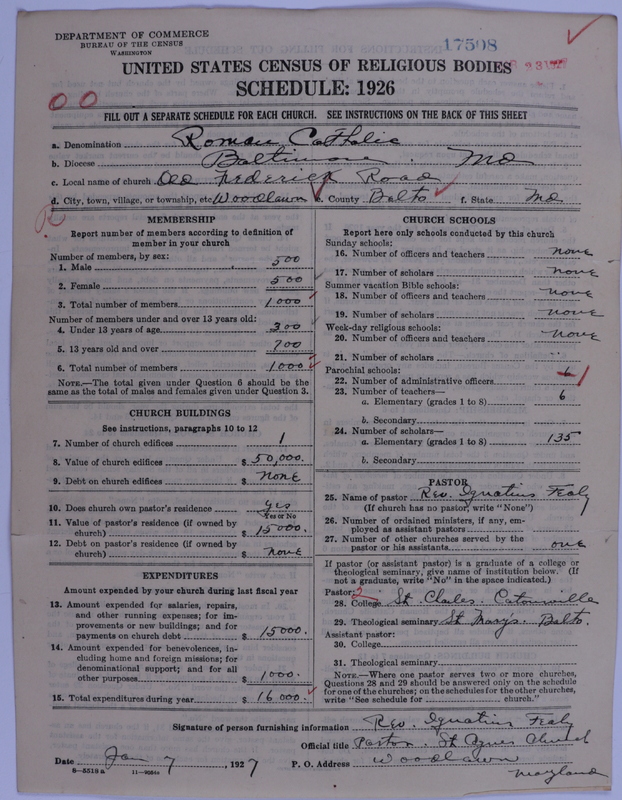 DEPARTMENT OF COMMERCE
BUREAU OF THE CENSUS
WASHINGTON
17508
UNITED STATES CENSUS OF RELIGIOUS BODIES
SCHEDULE: 1926
FILL OUT A SEPARATE SCHEDULE FOR EACH CHURCH. SEE INSTRUCTIONS ON THE BACK OF THIS SHEET
a. Denomination Roman Catholic
b. Diocese Baltimore. Md
c. Local name of church Old Frederick Road
d. City, town, village, or township, etc Woodlawn e. County Balto f. State Md
MEMBERSHIP
Report number of members according to definition of
member in your church
Number of members, by sex:
1. Male 500
2. Female 500
3. Total number of members 1.000
Number of members under and over 13 years old:
4. Under 13 years of age 300
5. 13 years old and over 700
6. Total number of members 1000
NOTE.—The total given under Question 6 should be the
same as the total of males and females given under Question 3.
CHURCH BUILDINGS
See instructions, paragraphs 10 to 12
7. Number of church edifices 1
8. Value of church edifices $ 50,000.
9. Debt on church edifices $ none
10. Does church own pastor's residence yes
Yes or No
11. Value of pastor's residence (if owned by
church) $ 15000.
12. Debt on pastor's residence (if owned by
church) $ none
EXPENDITURES
Amount expended by your church during last fiscal year
13. Amount expended for salaries, repairs,
and other running expenses; for im-
provements or new buildings; and for
payments on church debt $ 15000.
14. Amount expended for benevolences, in-
cluding home and foreign missions; for
denominational support; and for all
other purposes $ 1000.
15. Total expenditures during year $ 16000.
CHURCH SCHOOLS
Report here only schools conducted by this church
Sunday schools:
16. Number of officers and teachers none
17. Number of scholars none
Summer vacation Bible schools:
18. Number of officers and teachers none
19. Number of scholars none
Week-day religious schools:
20. Number of officers and teachers none
21. Number of scholars "
Parochial schools:
22. Number of administrative officers 6 1
23. Number of teachers—
a. Elementary (grades 1 to 8) 6
b. Secondary
24. Number of scholars—
a. Elementary (grades 1 to 8) 135
b. Secondary
PASTOR
25. Name of pastor Rev. Ignatius Fealy
(If church has no pastor, write "None")
26. Number of ordained ministers, if any, em-
ployed as assistant pastors
27. Number of other churches served by the
pastor or his assistants one
If pastor (or assistant pastor) is a graduate of a college or
theological seminary, give name of institution below. (If
not a graduate, write "No" in the space indicated.)
Pastor: 2
28. College St. Charles Catonsville
29. Theological seminary St Marys. Balto.
Assistant pastor:
30. College
31. Theological seminary
NOTE.—Where one pastor serves two or more churches,
Questions 28 and 29 should be answered only on the schedule
for one of the churches; on the schedules for the other churches,
write "See schedule for church."
Signature of person furnishing information Rev. Ignatius Fealy
Official title Pastor. St Agnes Church
Date Jan 7, 1927 P. O. Address Woodlawn
Maryland
8—5518 a